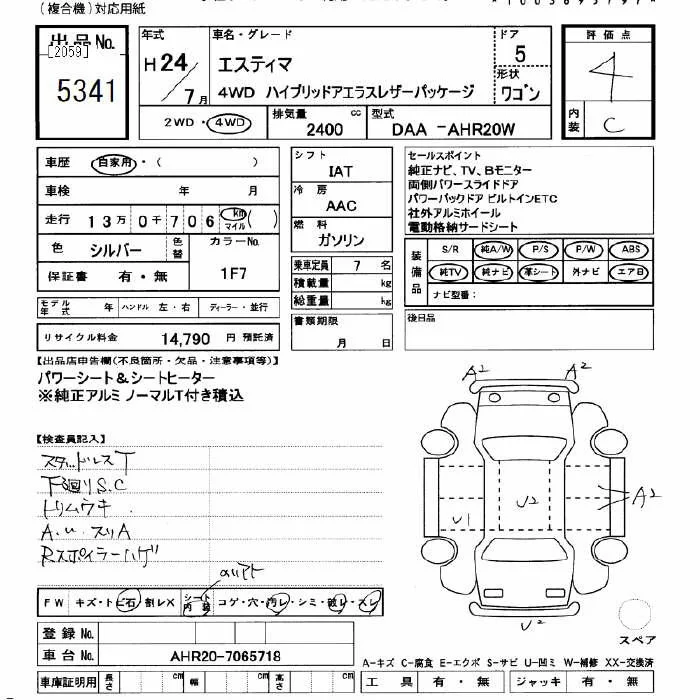 (複合機)対応用紙
出品No.
[2059]
5341
年式
H24/7月
車名・グレード
エスティマ
4WD ハイブリッドアエラスレザーパッケージ
ドア
5
形状
ワゴン
評価点
4
内装
C
2WD・4WD
排気量
2400 cc
型式
DAA -AHR20W
車歴
自家用・( )
車検 年 月
走行 13万0千706 km マイル ( )
色 シルバー 色替 カラーNo. 1F7
保証書 有・無
シフト
IAT
冷房
AAC
燃料
ガソリン
乗車定員 7 名
積載量 kg
総重量 kg
セールスポイント
純正ナビ、TV、Bモニター
両側パワースライドドア
パワーバックドア ビルトインETC
社外アルミホイール
電動格納サードシート
装備品
S/R 純A/W P/S P/W ABS
純TV 純ナビ 革シート 外ナビ エアB
ナビ型番:
モデル年式 年 ハンドル 左・右 ディーラー・並行
リサイクル料金 14,790 円 預託済
書類期限
月 日
後日品
【出品店申告欄(不良箇所・欠品・注意事項等)】
パワーシート&シートヒーター
※純正アルミ ノーマルT付き積込
【検査員記入】
スタッドレスT
下廻りS.C
トリムウキ
A.W.スリA
Rスポイラーハゲ
A2 A2
A2
U1 U2
U2
スペア
FW キズ・トビ石 割レX シート内装 コゲ・穴・汚レ・シミ・破レ・スレ
登録No.
車台No. AHR20-7065718
車庫証明用 長さ cm 幅 cm 高さ cm
A-キズ C-腐食 E-エクボ S-サビ U-凹ミ W-補修 XX-交換済
工具 有・無 ジャッキ 有・無